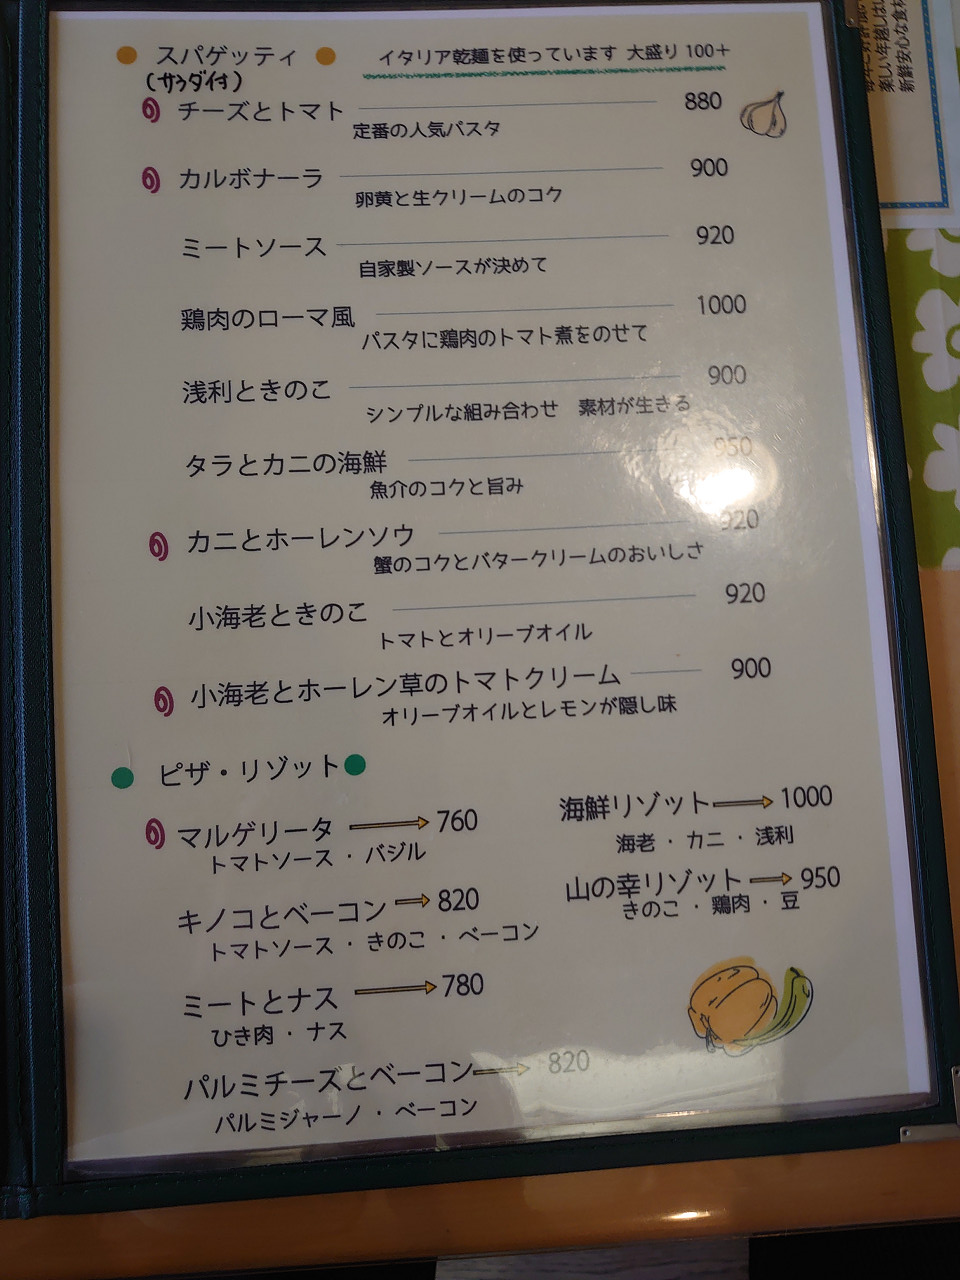 スパゲッティ イタリア乾麺を使っています 大盛り 100+
(サラダ付)
チーズとトマト 880
定番の人気パスタ
カルボナーラ 900
卵黄と生クリームのコク
ミートソース 920
自家製ソースが決めて
鶏肉のローマ風 1000
パスタに鶏肉のトマト煮をのせて
浅利ときのこ 900
シンプルな組み合わせ 素材が生きる
タラとカニの海鮮 950
魚介のコクと旨み
カニとホーレンソウ 920
蟹のコクとバタークリームのおいしさ
小海老ときのこ 920
トマトとオリーブオイル
小海老とホーレン草のトマトクリーム 900
オリーブオイルとレモンが隠し味
ピザ・リゾット
マルゲリータ 760
トマトソース・バジル
キノコとベーコン 820
トマトソース・きのこ・ベーコン
ミートとナス 780
ひき肉・ナス
パルミチーズとベーコン 820
パルミジャーノ・ベーコン
海鮮リゾット 1000
海老・カニ・浅利
山の幸リゾット 950
きのこ・鶏肉・豆